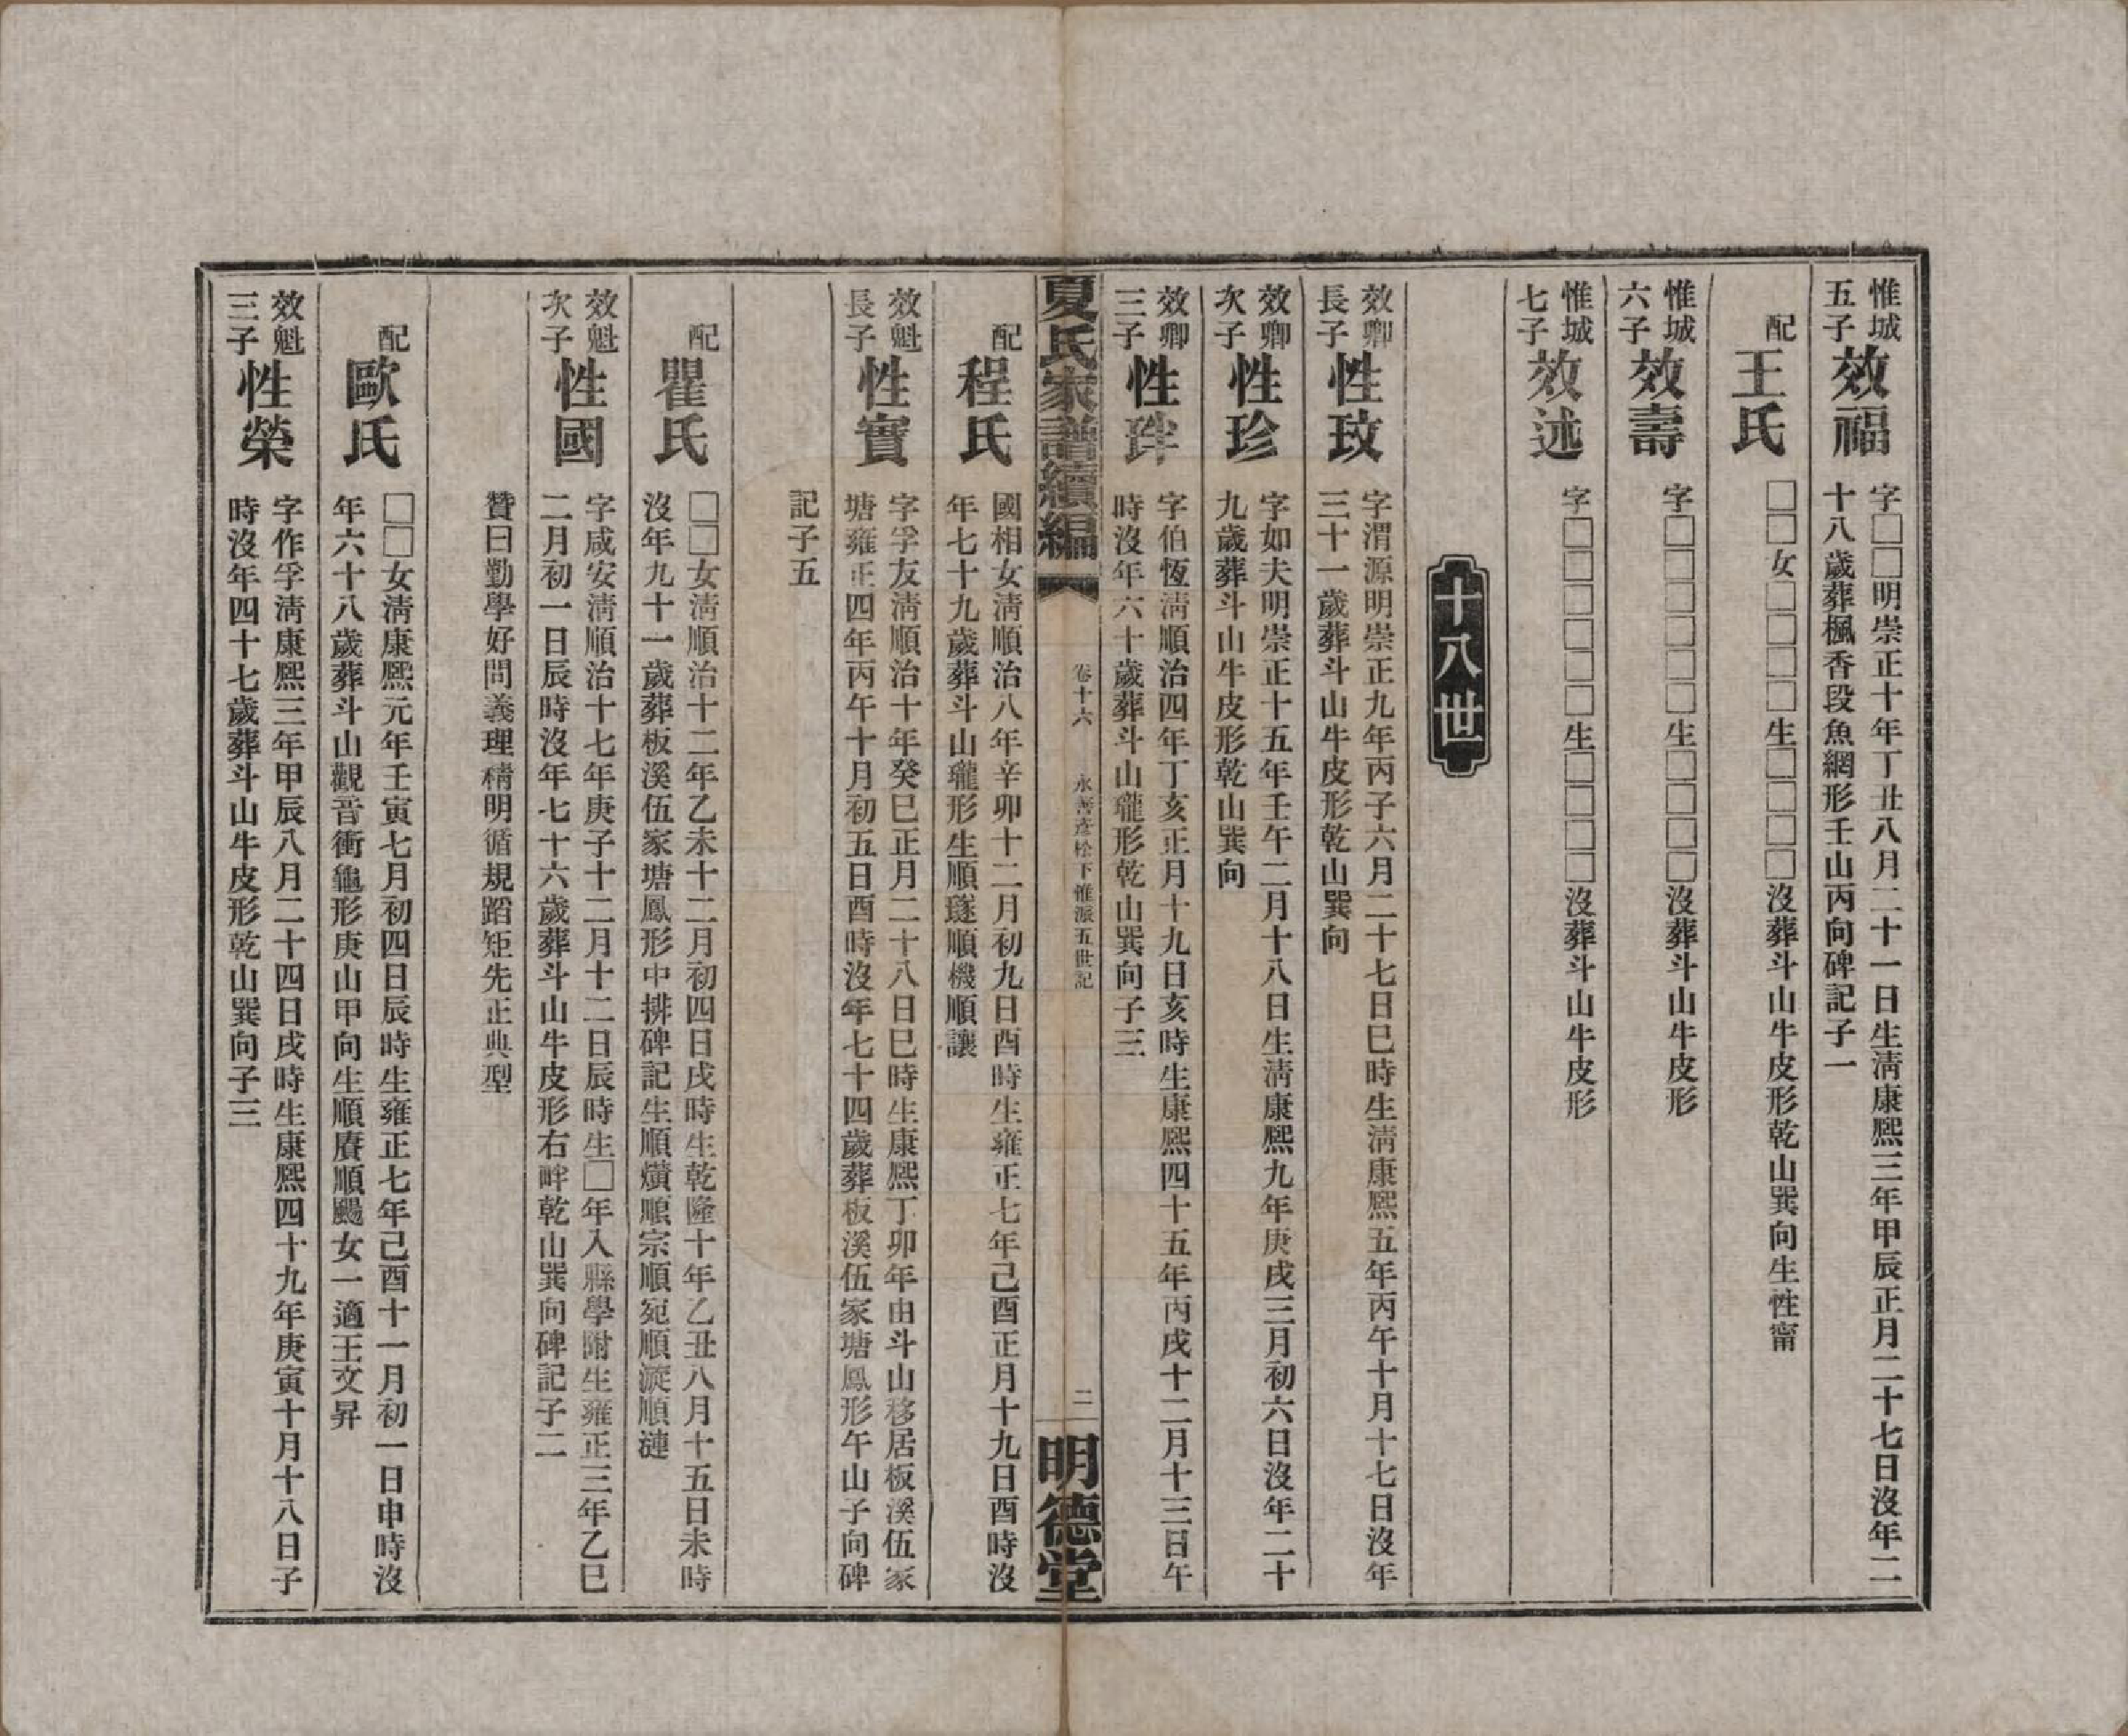 惟城五子
效福
字□□明崇正十年丁丑八月二十一日生淸康熙三年甲辰正月二十七日沒年二
十八歲葬楓香段魚網形壬山丙向碑記子一
配
王氏
□□女□□□□生□□□□沒葬斗山牛皮形乾山巽向生性甯
惟城六子
效壽
字□□□□□□生□□□□沒葬斗山牛皮形
惟城七子
效述
字□□□□□□生□□□□沒葬斗山牛皮形
十八世
效卿長子
性玟
字渭源明崇正九年丙子六月二十七日巳時生淸康熙五年丙午十月十七日沒年
三十一歲葬斗山牛皮形乾山巽向
效卿次子
性珍
字如夫明崇正十五年壬午二月十八日生淸康熙九年庚戌三月初六日沒年二十
九歲葬斗山牛皮形乾山巽向
效卿三子
性㺯
字伯恆淸順治四年丁亥正月十九日亥時生康熙四十五年丙戌十二月十三日午
時沒年六十歲葬斗山瓏形乾山巽向子三
夏氏家譜續編
卷十六
永善彥松下惟派五世記
二
明德堂
配
程氏
國相女淸順治八年辛卯十二月初九日酉時生雍正七年己酉正月十九日酉時沒
年七十九歲葬斗山瓏形生順璲順機順讓
效魁長子
性實
字孚友淸順治十年癸巳正月二十八日巳時生康熙丁卯年由斗山移居板溪伍家
塘雍正四年丙午十月初五日酉時沒年七十四歲葬板溪伍家塘鳳形午山子向碑
記子五
配
瞿氏
□□女淸順治十二年乙未十二月初四日戌時生乾隆十年乙丑八月十五日未時
沒年九十一歲葬板溪伍家塘鳳形中排碑記生順爌順宗順宛順漩順漣
效魁次子
性國
字咸安淸順治十七年庚子十二月十二日辰時生□年入縣學附生雍正三年乙巳
二月初一日辰時沒年七十六歲葬斗山牛皮形右畔乾山巽向碑記子二
贊曰勤學好問義理精明循規蹈矩先正典型
配
歐氏
□□女淸康熙元年壬寅七月初四日辰時生雍正七年己酉十一月初一日申時沒
年六十八歲葬斗山觀音衝龜形庚山甲向生順賡順颺女一適王文昇
效魁三子
性榮
字作孚淸康熙三年甲辰八月二十四日戌時生康熙四十九年庚寅十月十八日子
時沒年四十七歲葬斗山牛皮形乾山巽向子三